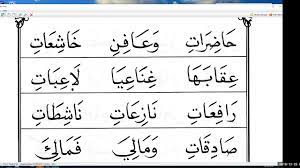 خَاشِعَاتِ وَعَافِنِ حَاضِرَاتِ
لَاعِبَاتِ غِنَاعِيَا عِقَابَهَا
نَاشِطَاتِ نَازِعَاتِ رَافِعَاتِ
وَمَالِيَ صَادِقَاتِ